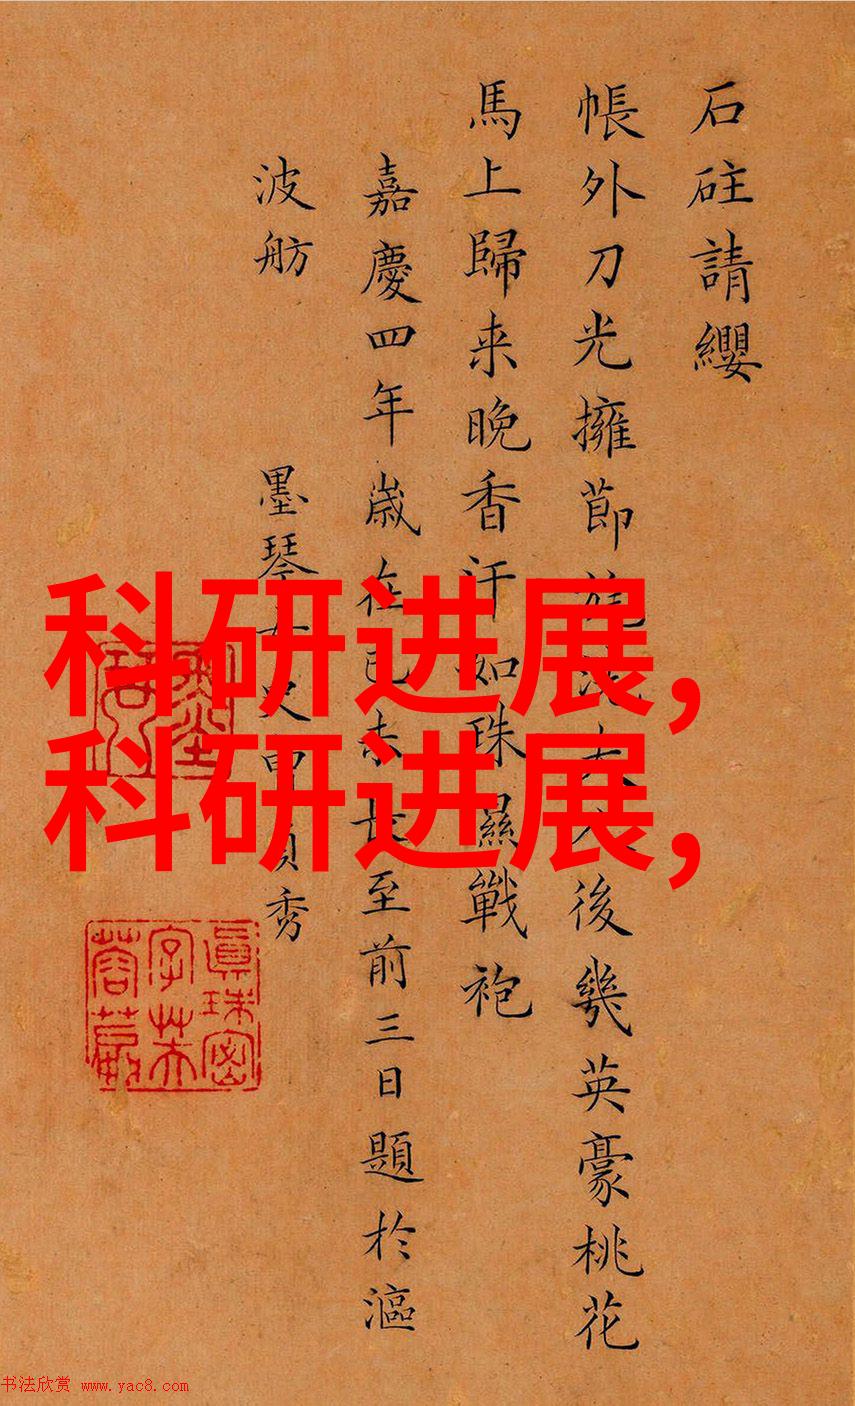 石砫請纓
帳外刀光擁節旄洗夫人後幾英豪桃花
馬上歸来晚香汗如珠濕戰袍
嘉慶四年歲在己未長至前三日題於漚
波舫 墨琴女史曹貞秀
眞珠密字芙蓉
科研进展,
科研进展,
书法欣赏 www.yac8.com